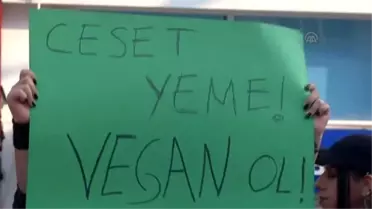 CESET
YEME!
VEGAN OL!